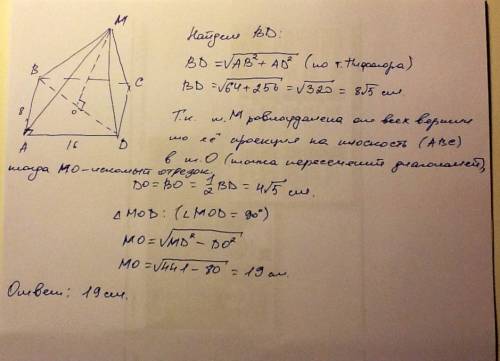 M
B
C
8
O
A
16
D
Найдем BD:
BD = √AB² + AD² (по т. Пифагора)
BD = √64 + 256 = √320 = 8√5 см.
Т.к. т. M равноудалена от всех вершин
то её проекция на плоскость (ABC)
в т. O (точка пересечения диагоналей),
тогда MO - искомый отрезок.
DO = BO = 1/2 BD = 4√5 см.
△ MOD: (∠MOD = 90°)
MO = √MD² - DO²
MO = √441 - 80 = 19 см.
Ответ: 19 см.